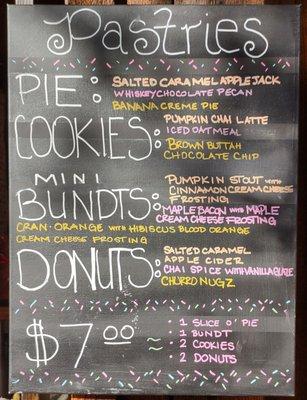 Pastries
PIE: SALTED CARAMEL APPLE JACK
WHISKEY CHOCOLATE PECAN
BANANA CREME PIE
COOKIES: PUMPKIN CHAI LATTE
ICED OATMEAL
BROWN BUTTAH
CHOCOLATE CHIP
MINI
BUNDTS: PUMPKIN STOUT WITH
CINNAMON CREAM CHEESE
FROSTING
MAPLE BACON WITH MAPLE
CREAM CHEESE FROSTING
CRAN-ORANGE WITH HIBISCUS BLOOD ORANGE
CREAM CHEESE FROSTING
DONUTS: SALTED CARAMEL
APPLE CIDER
CHAI SPICE WITH VANILLA GLAZE
CHURRO NUGZ
$7.00 ≈ • 1 SLICE O' PIE
• 1 BUNDT
• 2 COOKIES
• 2 DONUTS